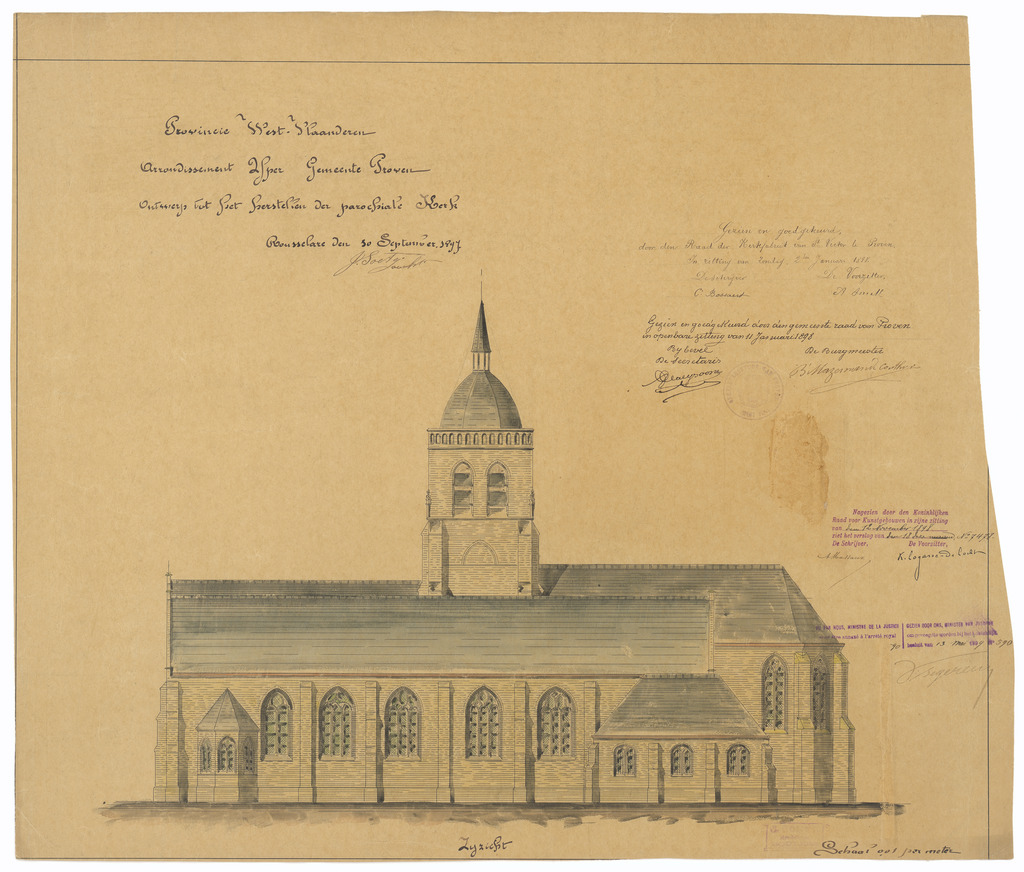 Provincie West-Vlaanderen
Arrondissement Yper Gemeente Proven
Ontwerp tot het herstellen der parochiale Kerk
Rousselare den 10 September 1897
J. Soete
Gezien en goedgekeurd,
door den Raad der Kerkfabriek van St Victor te Proven,
In zitting van Zondag, 2den Januari 1898.
De Voorzitter,
Gezien en goedgekeurd door den gemeente raad van Proven
in openbare zitting van 11 Januari 1898
By bevel
De Secretaris
De Burgmeester
Bn Mazeman de Couthove
Nagezien door den Koninklijken
Raad voor Kunstgebouwen in zijne zitting
van den 12 November 1898
ziet het verslag van den
De Schrijver, De Voorzitter,
K. Lagasse-de Locht
PAR NOUS, MINISTRE DE LA JUSTICE
annexé à l'arrêté royal
GEZIEN DOOR ONS, MINISTER VAN JUSTITIE
besluit van 13 Mei
Zyzicht
Schaal 0,01 per meter